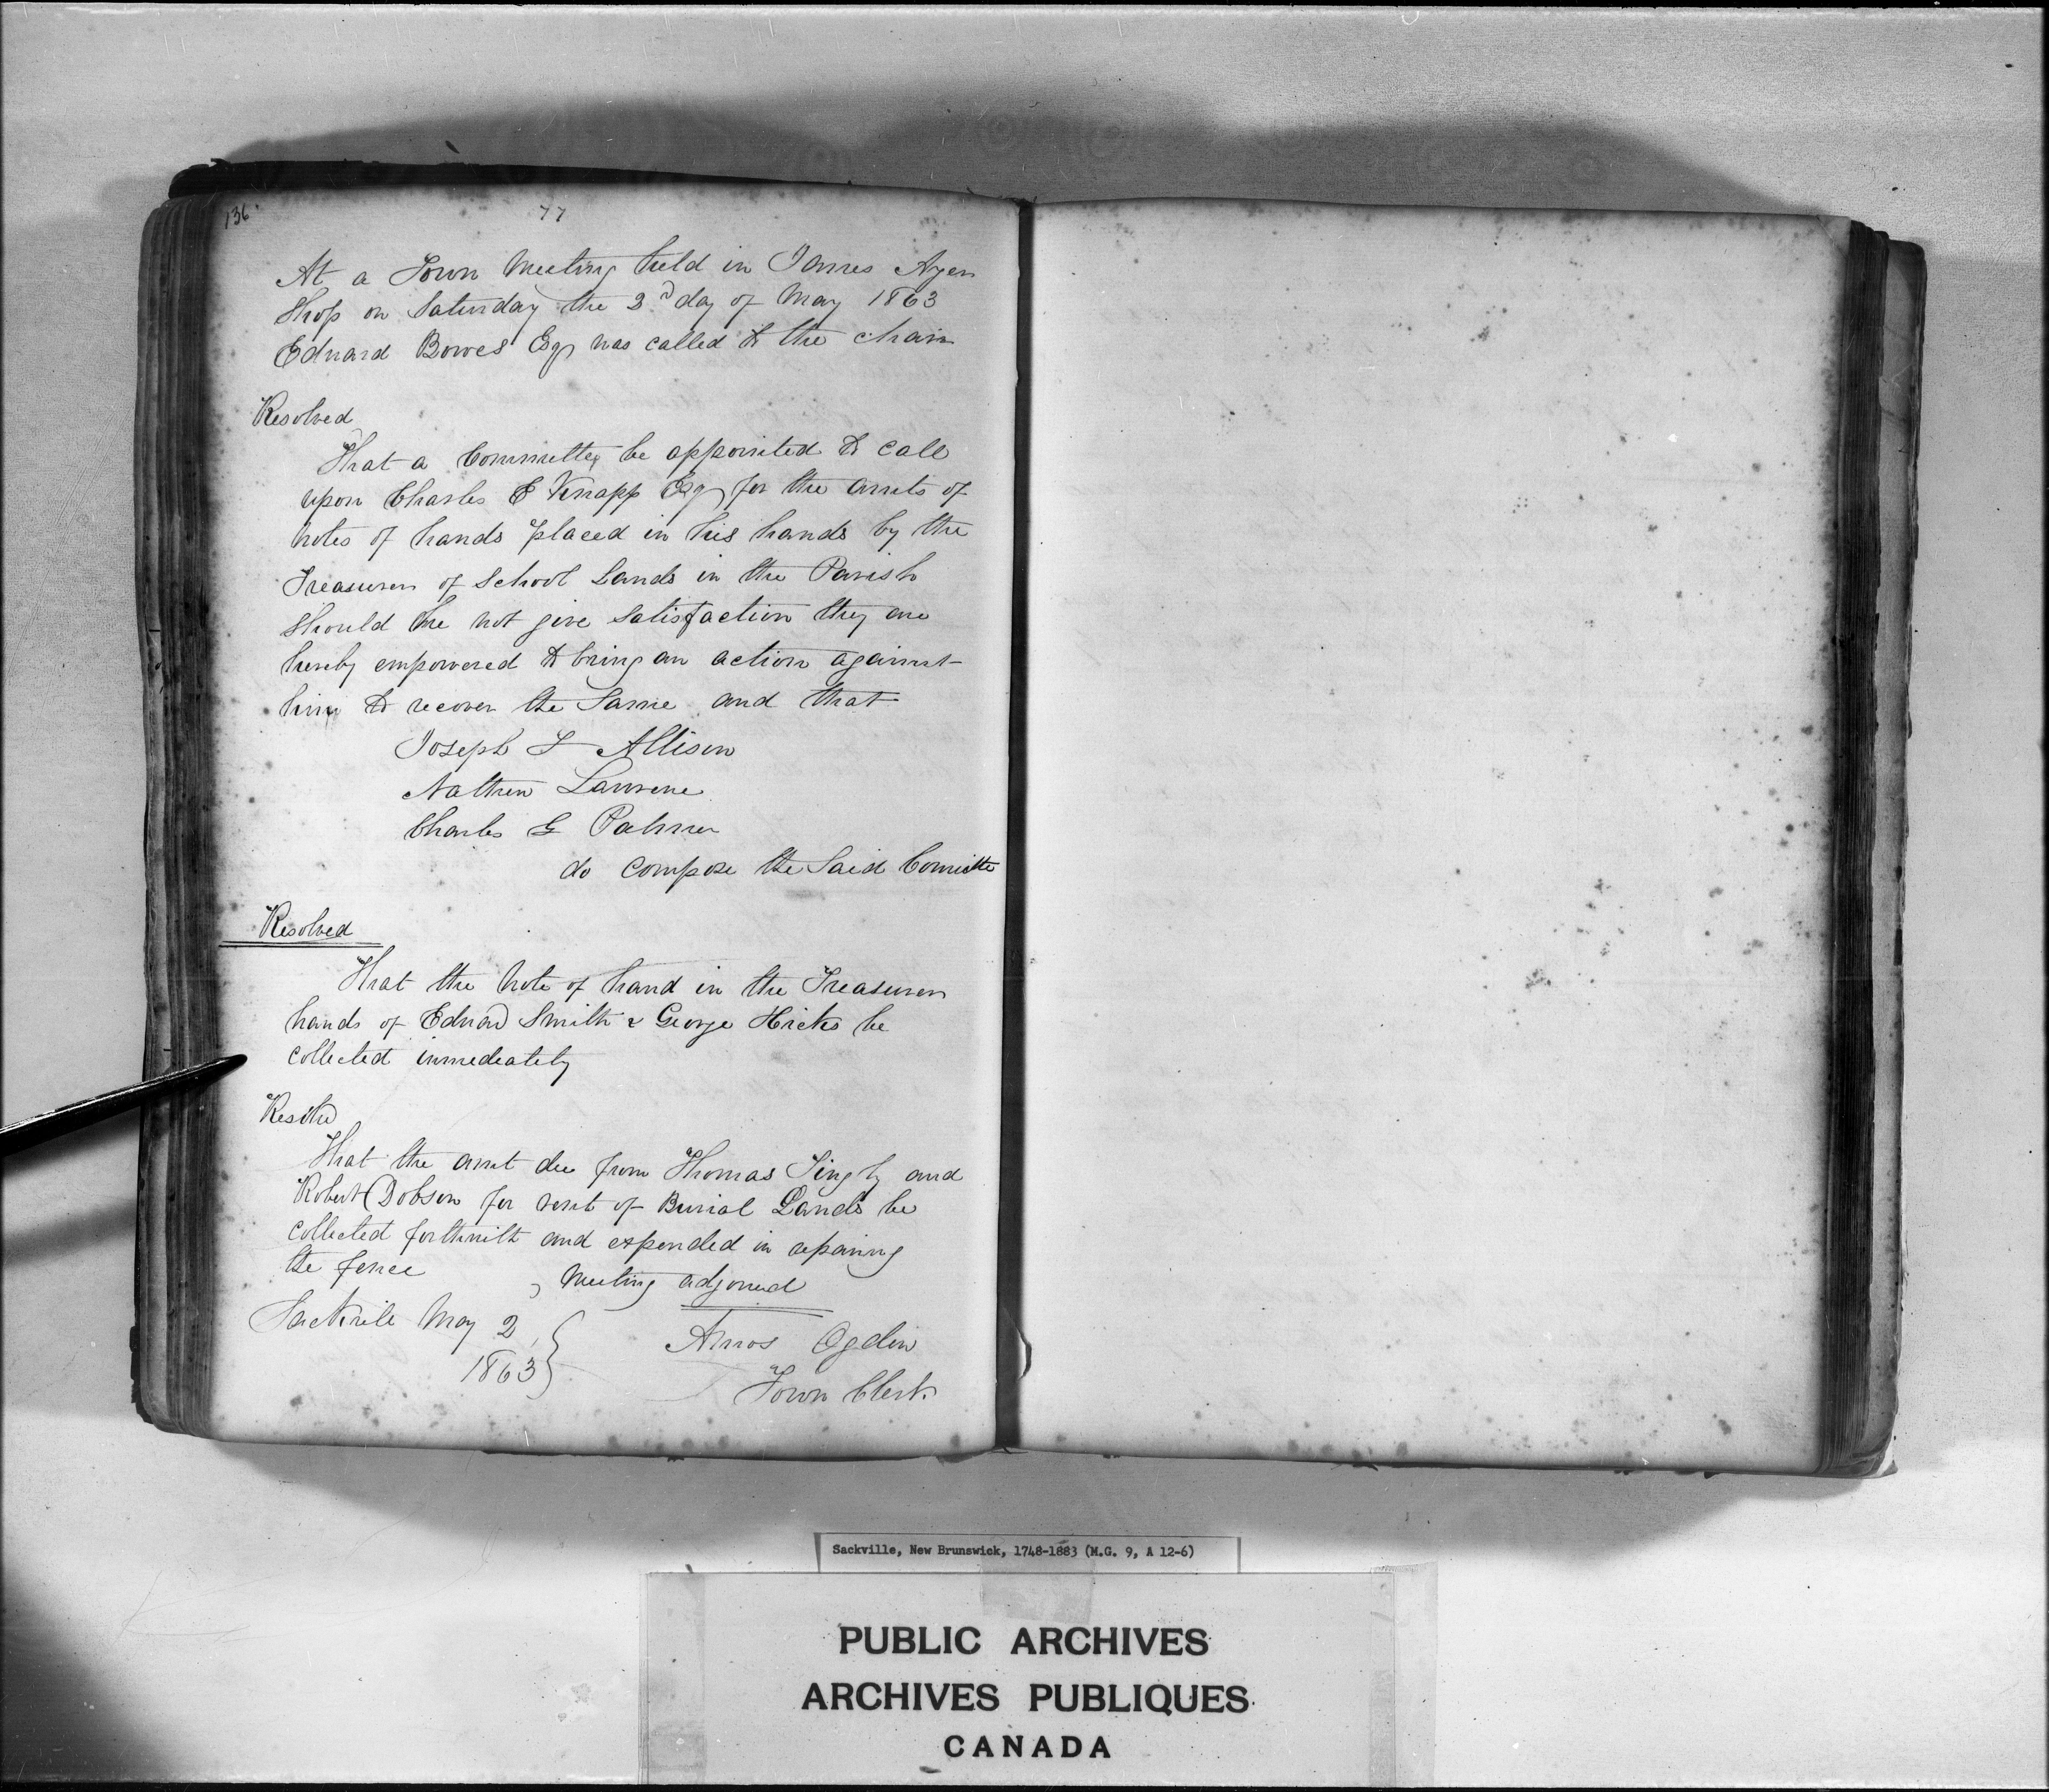 136
77
At a Town Meeting held in James Ayer
Shop on Saturday the 2d day of May 1863
Edward Bowes Esqr was called to the chair
Resolved
That a Committey be appointed to call
upon Charles E Knapp Esqr for the amts of
notes of hands placed in his hands by the
Treasurer of School Lands in the Parish
Should he not give Satisfaction they are
hereby empowered to bring an action against
him to recover the Same and that
Joseph L Allison
Nathen Lawrene
Charles G Palmer
do compose the Said Comitte
Resolved
That the Note of hand in the Treasurer
hands of Edward Smith & George Hicks be
Collected immediately
Resolved
That the amt due from Thomas and
Robert Dobson for rent of Burial Lands be
Collected forthwith and expended in repaining
the fence
Meeting adjourned
Sackvile May 2
1863
Amos Ogden
Town Clerk
Sackville, New Brunswick, 1748-1883 (M.G. 9, A 12-6)
PUBLIC ARCHIVES
ARCHIVES PUBLIQUES
CANADA